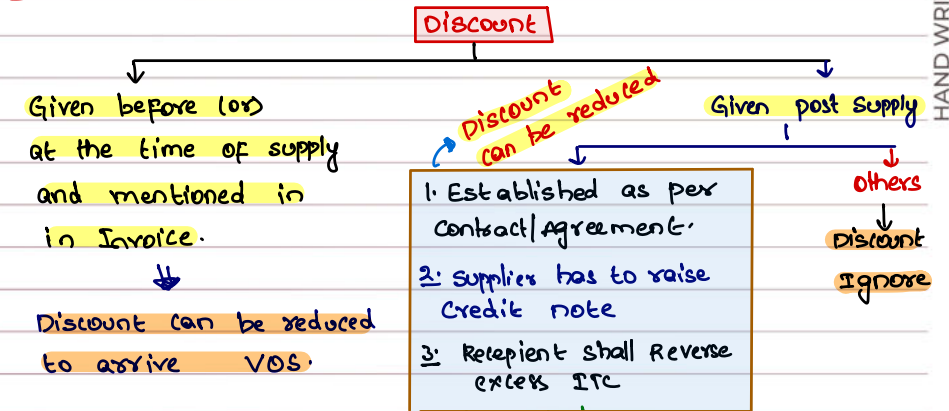 Discount
Given before (or)
at the time of supply
and mentioned in
in Invoice.
Discount can be reduced
to arrive VOS.
Discount
can be reduced
Given post supply
1. Established as per
Contract/Agreement.
2. Supplier has to raise
Credit note
3. Recepient shall Reverse
excess ITC
others
Discount
Ignore
HAND WRI